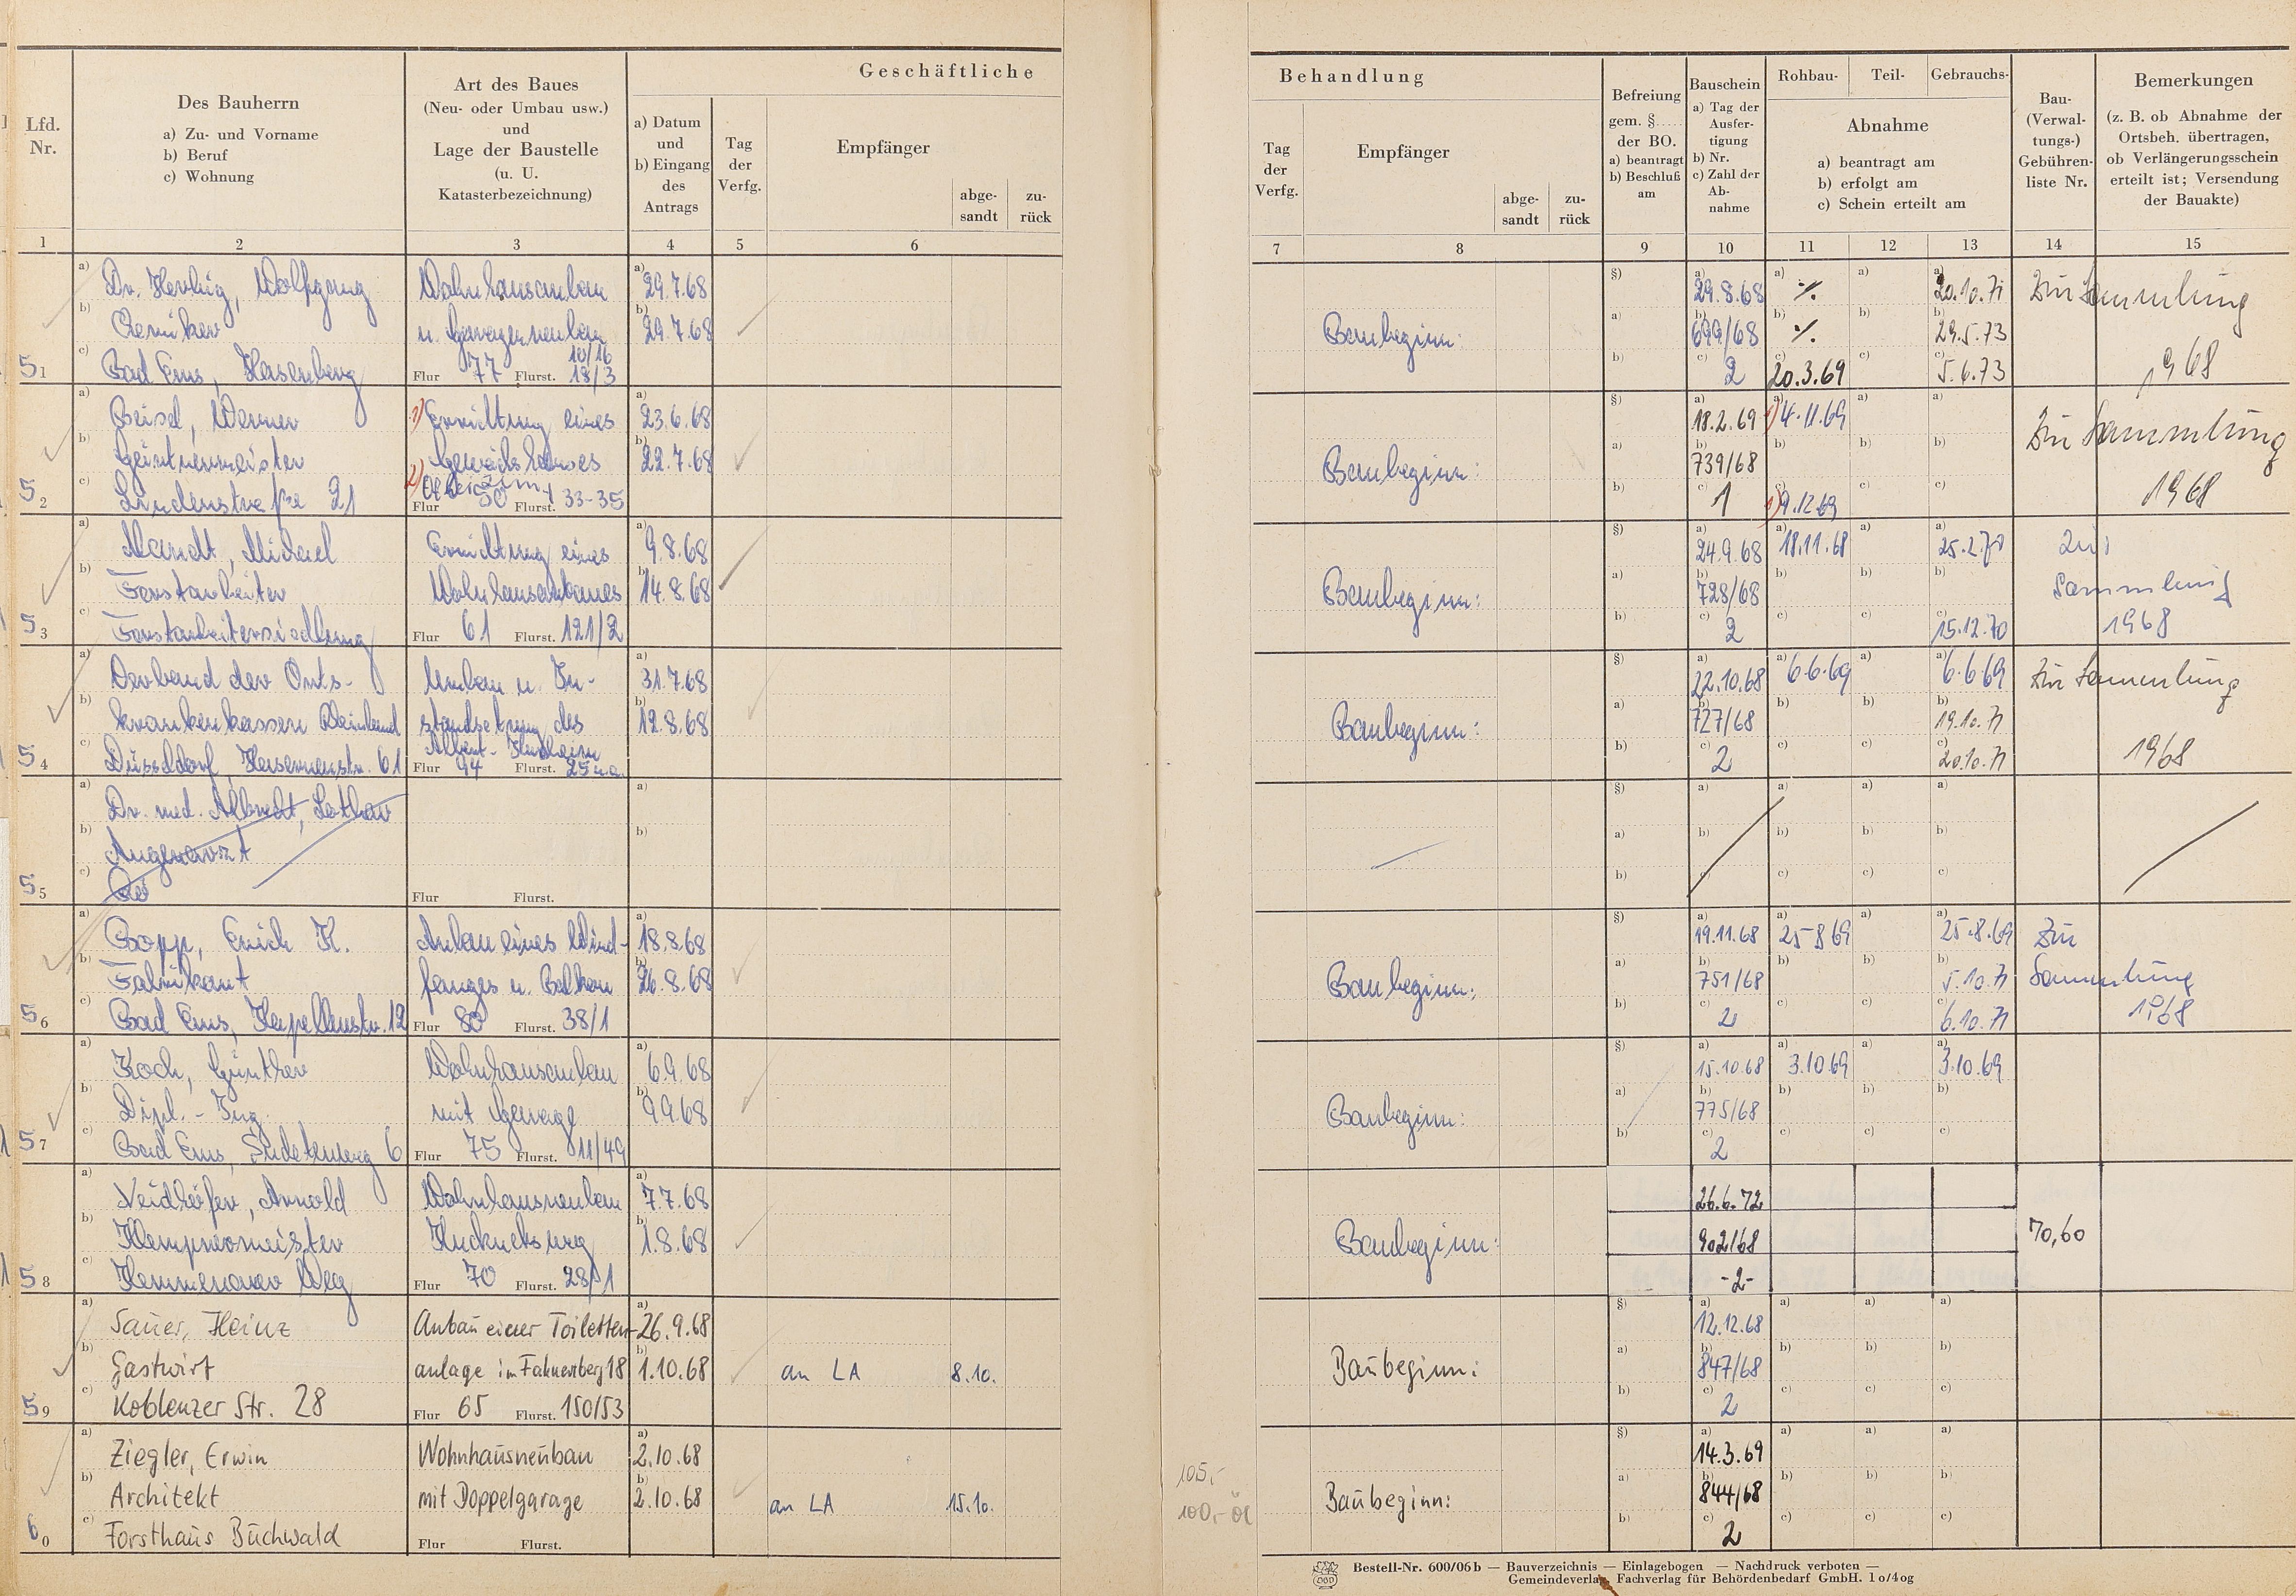 Geschäftliche Behandlung
Lfd. Nr.
Des Bauherrn
a) Zu- und Vorname
b) Beruf
c) Wohnung
Art des Baues
(Neu- oder Umbau usw.)
und
Lage der Baustelle
(u. U.
Katasterbezeichnung)
a) Datum
und
b) Eingang
des
Antrags
Tag
der
Verfg.
Empfänger
abge-
sandt
zu-
rück
Tag
der
Verfg.
Empfänger
abge-
sandt
zu-
rück
Befreiung
gem. §.....
der BO.
a) beantragt
b) Beschluß
am
Bauschein
a) Tag der
Ausfer-
tigung
b) Nr.
c) Zahl der
Ab-
nahme
Rohbau- Teil- Gebrauchs-
Abnahme
a) beantragt am
b) erfolgt am
c) Schein erteilt am
Bau-
(Verwal-
tungs-)
Gebühren-
liste Nr.
Bemerkungen
(z. B. ob Abnahme der
Ortsbeh. übertragen,
ob Verlängerungsschein
erteilt ist; Versendung
der Bauakte)
1 2 3 4 5 6 7 8 9 10 11 12 13 14 15
51
a) Dr. Herbig, Wolfgang
b) Chemiker
c) Bad Ems, Hasenberg
Wohnhausanbau
u. Garagenneubau
Flur 77 Flurst. 10/16 18/3
a) 29.7.68
b) 29.7.68
Baubeginn:
a) 29.8.68
b) 699/68
c) 2
a) ./.
b) ./.
c) 20.3.69
a) 20.10.71
b) 29.5.73
c) 5.6.73
Zur Sammlung
1968
52
a) Beisel, Werner
b) Gärtnermeister
c) Lindenstraße 21
1) Errichtung eines
Gewächshauses
2)
Flur 50 Flurst. 33-35
a) 23.6.68
b) 22.7.68
Baubeginn:
a) 18.2.69
b) 739/68
c) 1
a) 1) 4.11.69
c) 1) 9.12.69
Zur Sammlung
1968
53
a) Mandt, Michael
b) Forstarbeiter
c) Forstarbeitersiedlung
Errichtung eines
Wohnhausanbaues
Flur 61 Flurst. 121/2
a) 9.8.68
b) 14.8.68
Baubeginn:
a) 24.9.68
b) 728/68
c) 2
a) 18.11.68
a) 25.2.70
c) 15.12.70
Zur
Sammlung
1968
54
a) Verband der Orts-
b) krankenkassen Rheinland
c) Düsseldorf, Kasernenstr. 61
Umbau u. In-
standsetzung des
Flur 94 Flurst. 25 u.a.
a) 31.7.68
b) 12.8.68
Baubeginn:
a) 22.10.68
b) 727/68
c) 2
a) 6.6.69
a) 6.6.69
b) 19.10.71
c) 20.10.71
Zur Sammlung
1968
55
a) Dr. med. Albrecht, Lothar
b) Augenarzt
Flur Flurst.
56
a) Bopp, Erich K.
b) Fabrikant
c) Bad Ems, Kapellenstr. 12
Anbau eines Wind-
fanges u. Balkon
Flur 80 Flurst. 38/1
a) 18.8.68
b) 26.8.68
Baubeginn:
a) 19.11.68
b) 751/68
c) 2
a) 25.8.69
a) 25.8.69
b) 5.10.71
c) 6.10.71
Zur
Sammlung
1968
57
a) Koch, Günther
b) Dipl.-Ing.
c) Bad Ems, Sudetenweg 6
Wohnhausanbau
mit Garage
Flur 75 Flurst. 11/49
a) 6.9.68
b) 9.9.68
Baubeginn:
a) 15.10.68
b) 775/68
c) 2
a) 3.10.69
a) 3.10.69
58
a) Neidhöfer, Arnold
b) Klempnermeister
c) Kemmenauer Weg
Wohnhausneubau
Kuckucksweg
Flur 70 Flurst. 28/1
a) 7.7.68
b) 1.8.68
Baubeginn:
26.6.72
902/68
-2-
70,60
59
a) Sauer, Heinz
b) Gastwirt
c) Koblenzer Str. 28
Anbau einer Toiletten-
anlage im Fahnenberg 18
Flur 65 Flurst. 150/53
a) 26.9.68
b) 1.10.68
an LA 8.10.
Baubeginn:
a) 12.12.68
b) 847/68
c) 2
60
a) Ziegler, Erwin
b) Architekt
c) Forsthaus Buchwald
Wohnhausneubau
mit Doppelgarage
Flur Flurst.
a) 2.10.68
b) 2.10.68
an LA 15.10.
105,-
100,- Öl
Baubeginn:
a) 14.3.69
b) 844/68
c) 2
Bestell-Nr. 600/06 b — Bauverzeichnis — Einlagebogen — Nachdruck verboten —
Gemeindeverlag, Fachverlag für Behördenbedarf GmbH. 10/4og